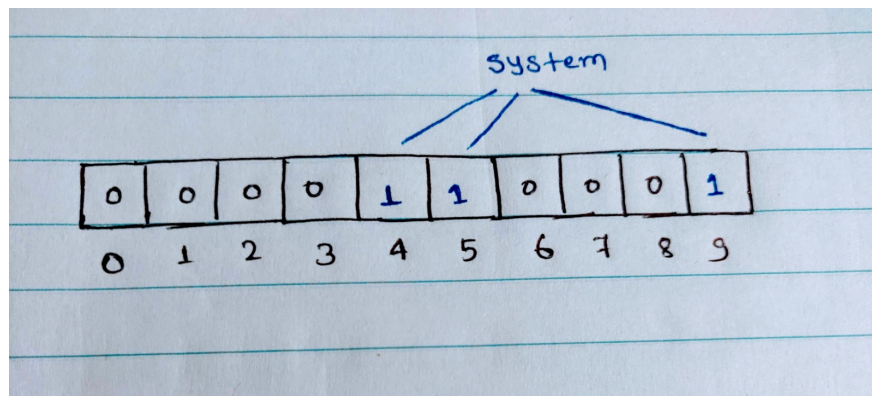 system
0 0 0 0 1 1 0 0 0 1
0 1 2 3 4 5 6 7 8 9